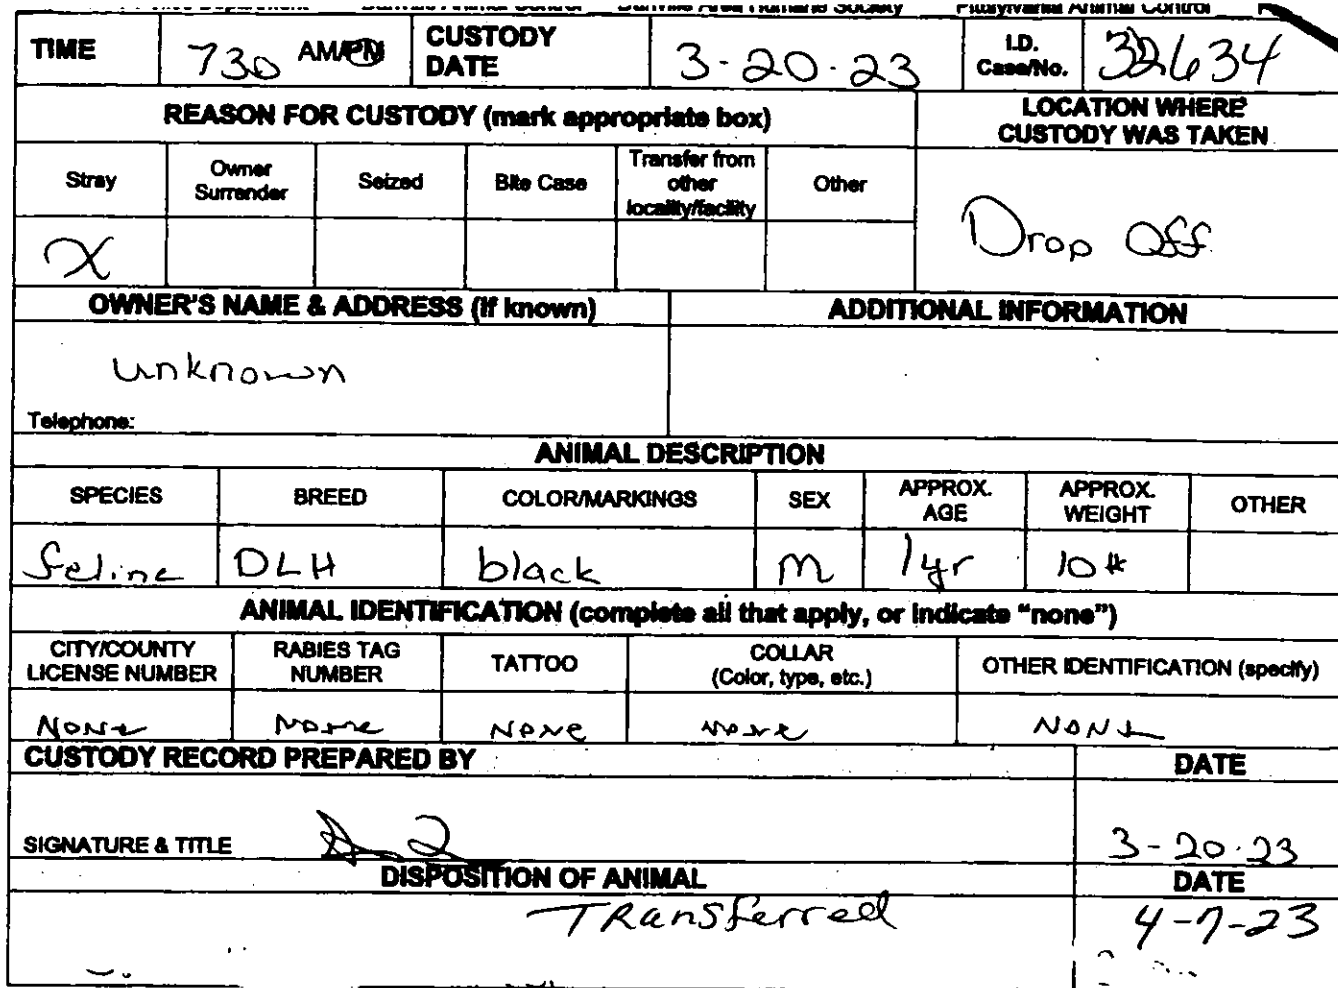 Danville Area Humane Society Pittsylvania Animal Control
TIME 730 AM/PM CUSTODY DATE 3-20-23 I.D. Case/No. 32634
REASON FOR CUSTODY (mark appropriate box) LOCATION WHERE CUSTODY WAS TAKEN
Stray Owner Surrender Seized Bite Case Transfer from other locality/facility Other
X Drop Off
OWNER'S NAME & ADDRESS (if known) ADDITIONAL INFORMATION
unknown
Telephone:
ANIMAL DESCRIPTION
SPECIES BREED COLOR/MARKINGS SEX APPROX. AGE APPROX. WEIGHT OTHER
feline DLH black M 1yr 10#
ANIMAL IDENTIFICATION (complete all that apply, or indicate “none”)
CITY/COUNTY LICENSE NUMBER RABIES TAG NUMBER TATTOO COLLAR (Color, type, etc.) OTHER IDENTIFICATION (specify)
None None None None None
CUSTODY RECORD PREPARED BY DATE
SIGNATURE & TITLE 3-20-23
DISPOSITION OF ANIMAL DATE
Transferred 4-7-23